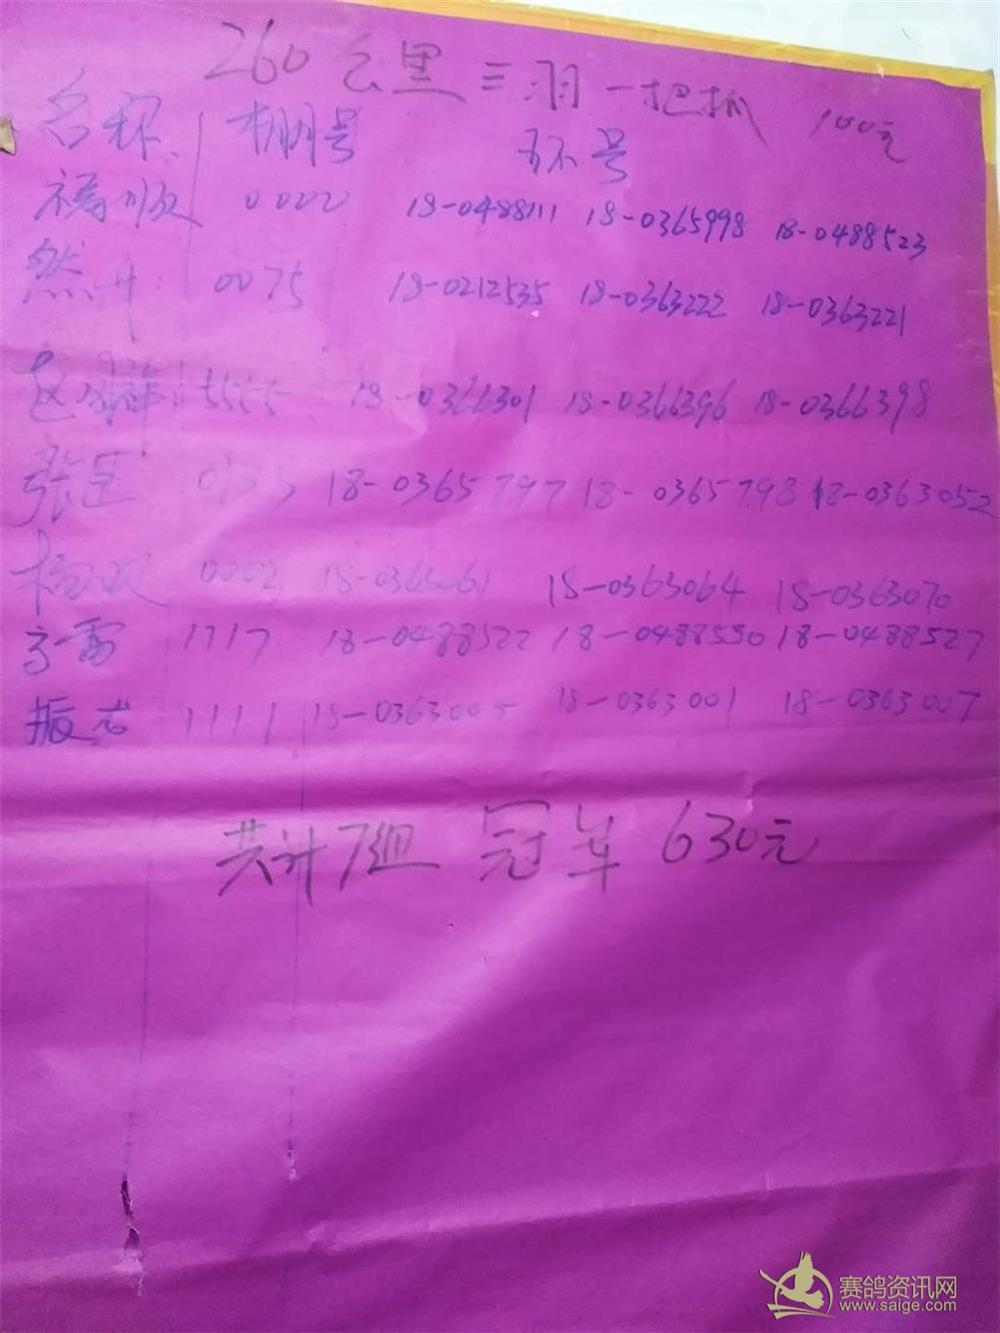 260公里三羽一把抓 100元
名称 棚号 环号
福顺 0000 18-0488111 18-0365998 18-0488523
然升 0075 18-0212535 18-0363222 18-0363221
赵 祥 5555 18-0366301 18-0366396 18-0366398
张 18-0365797 18-0365798 18-0363052
杨双 0002 18-0363061 18-0363064 18-0363070
高雷 1717 18-0488522 18-0488530 18-0488527
振 1111 18-0363005 18-0363001 18-0363007
共计7组 冠军 630元
赛鸽资讯网
www.saige.com